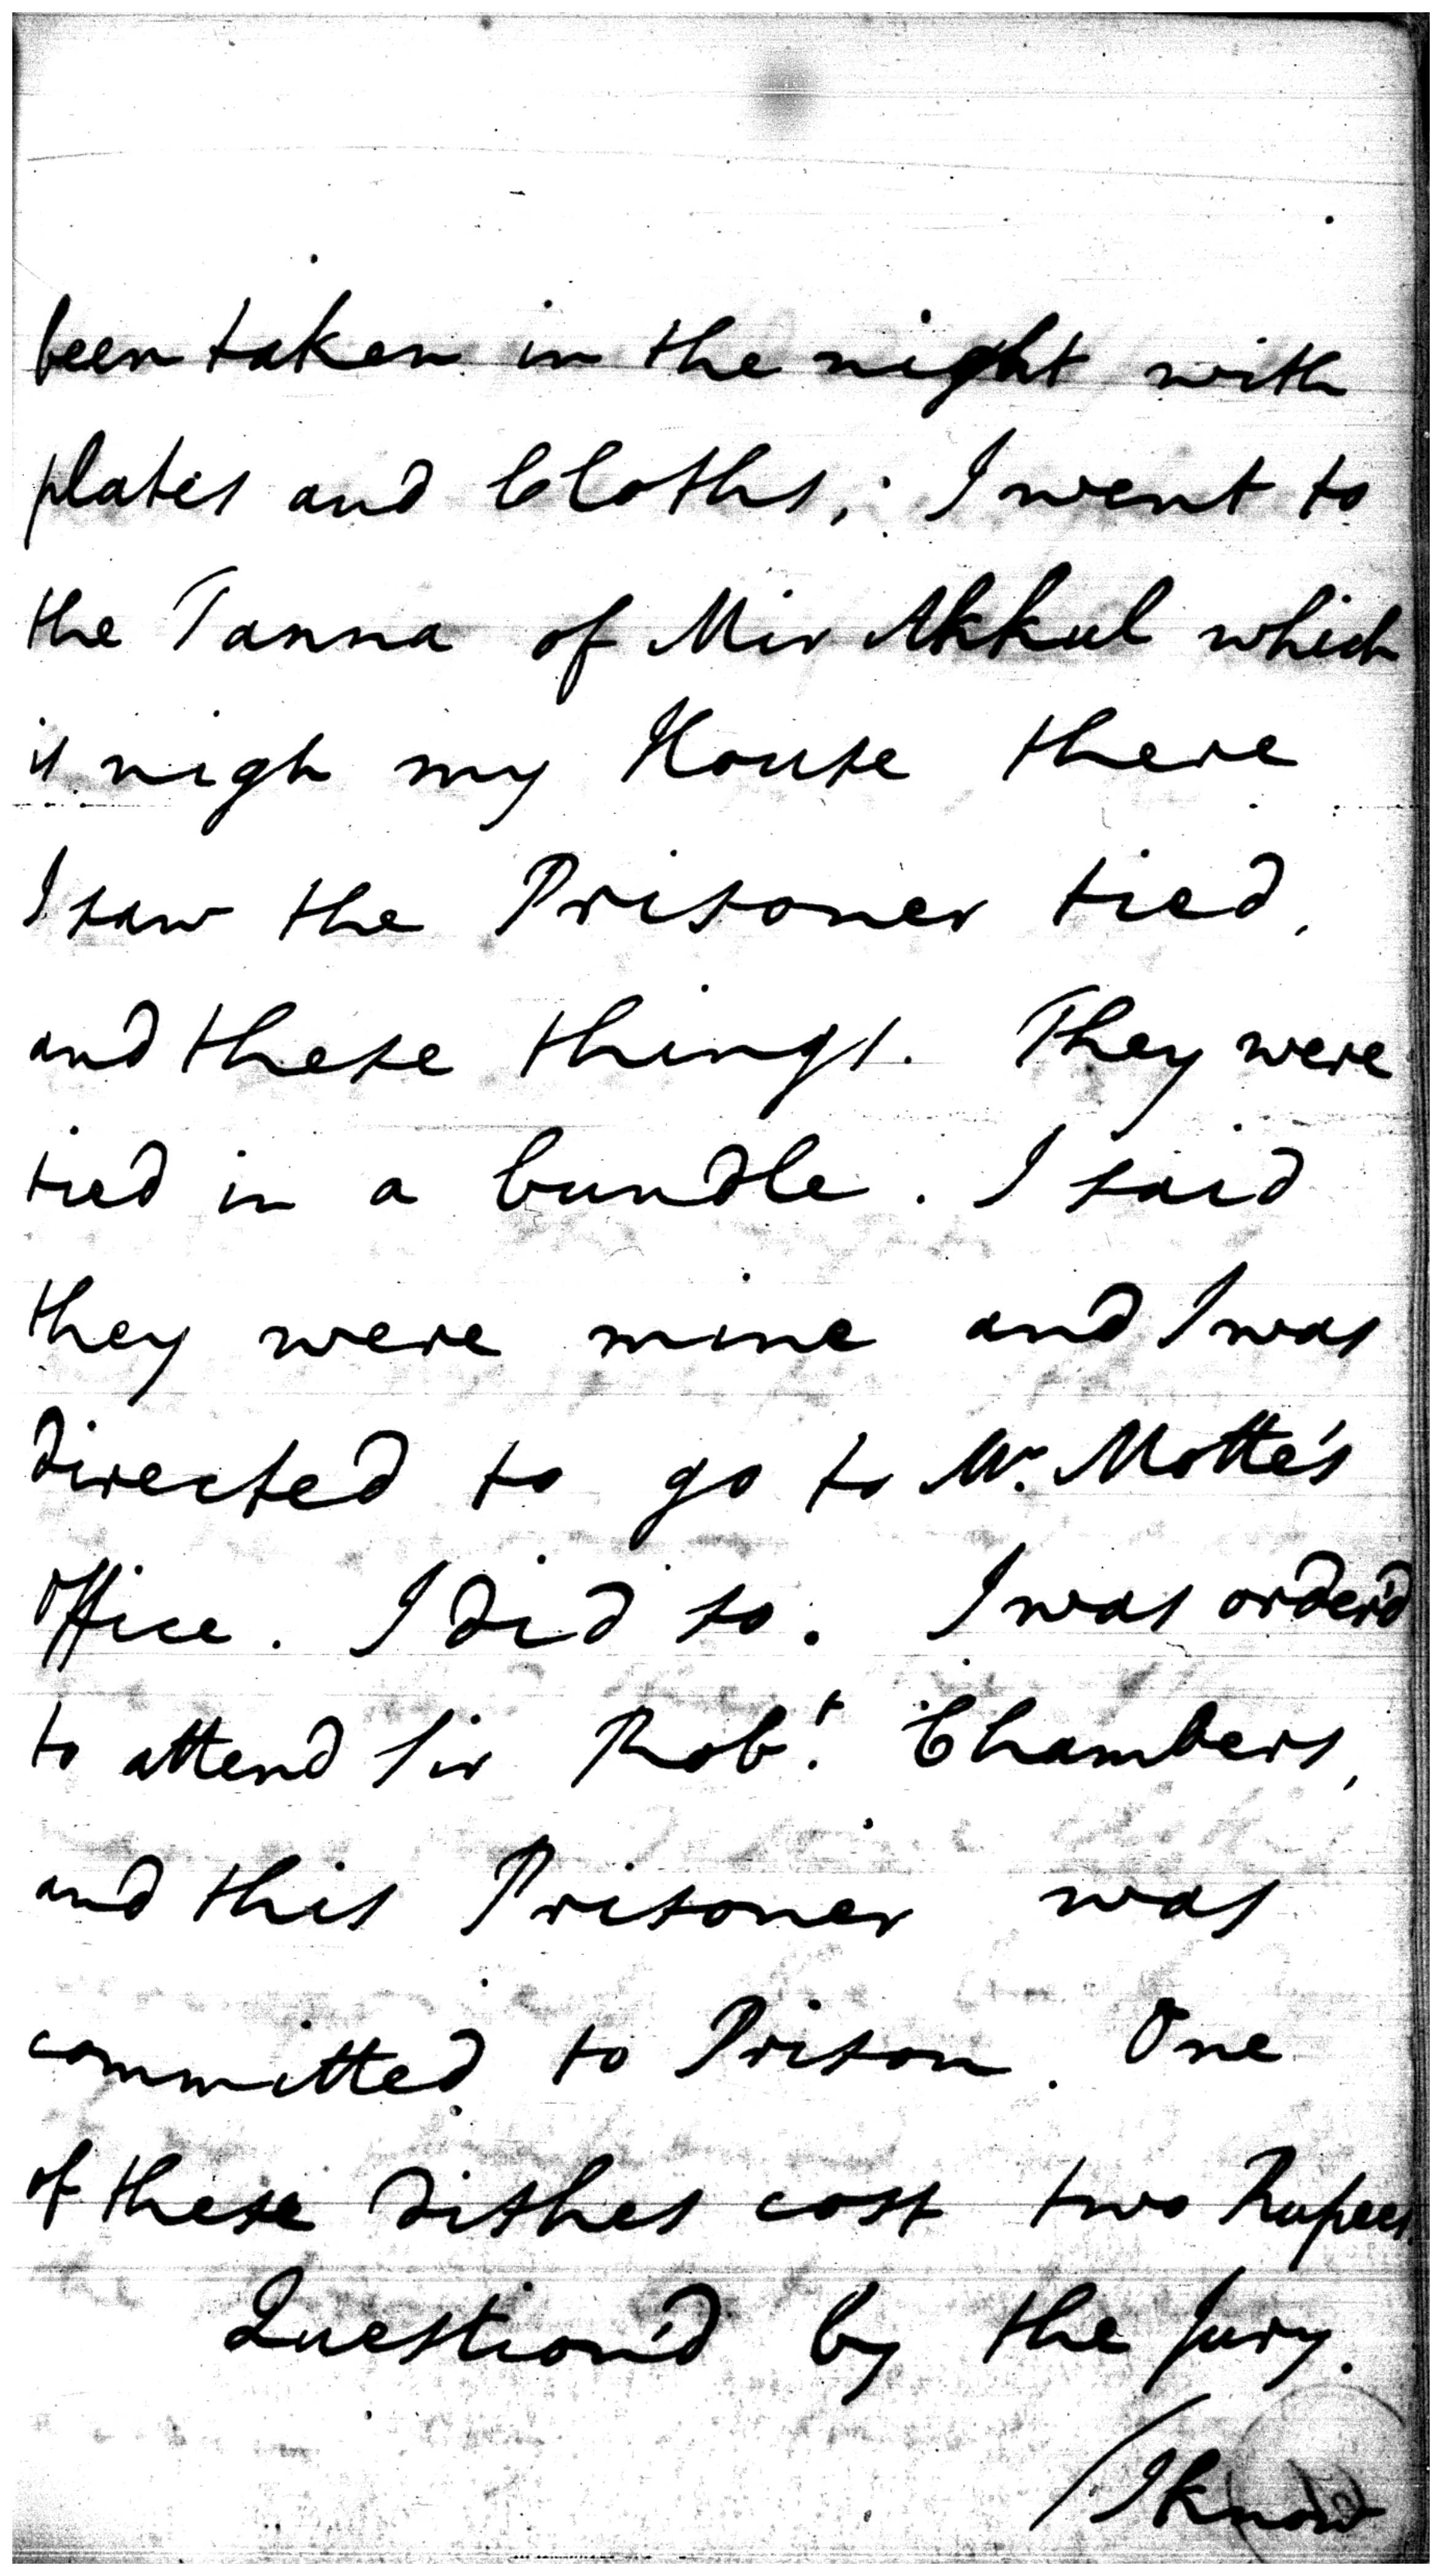 been taken in the night with
plates and Cloths, I went to
the Tanna of Mir Akkul which
is nigh my House there
I saw the Prisoner tied,
and these things. They were
tied in a bundle. I said
they were mine and I was
directed to go to Mr. Motte's
office. I did so. I was order'd
to attend Sir Robt. Chambers,
and this Prisoner was
committed to Prison. One
of these dishes cost two Rupees.
Question'd by the Jury.
I know